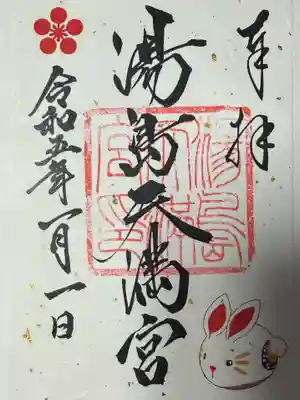 奉拝
湯島天満宮
令和五年一月一日